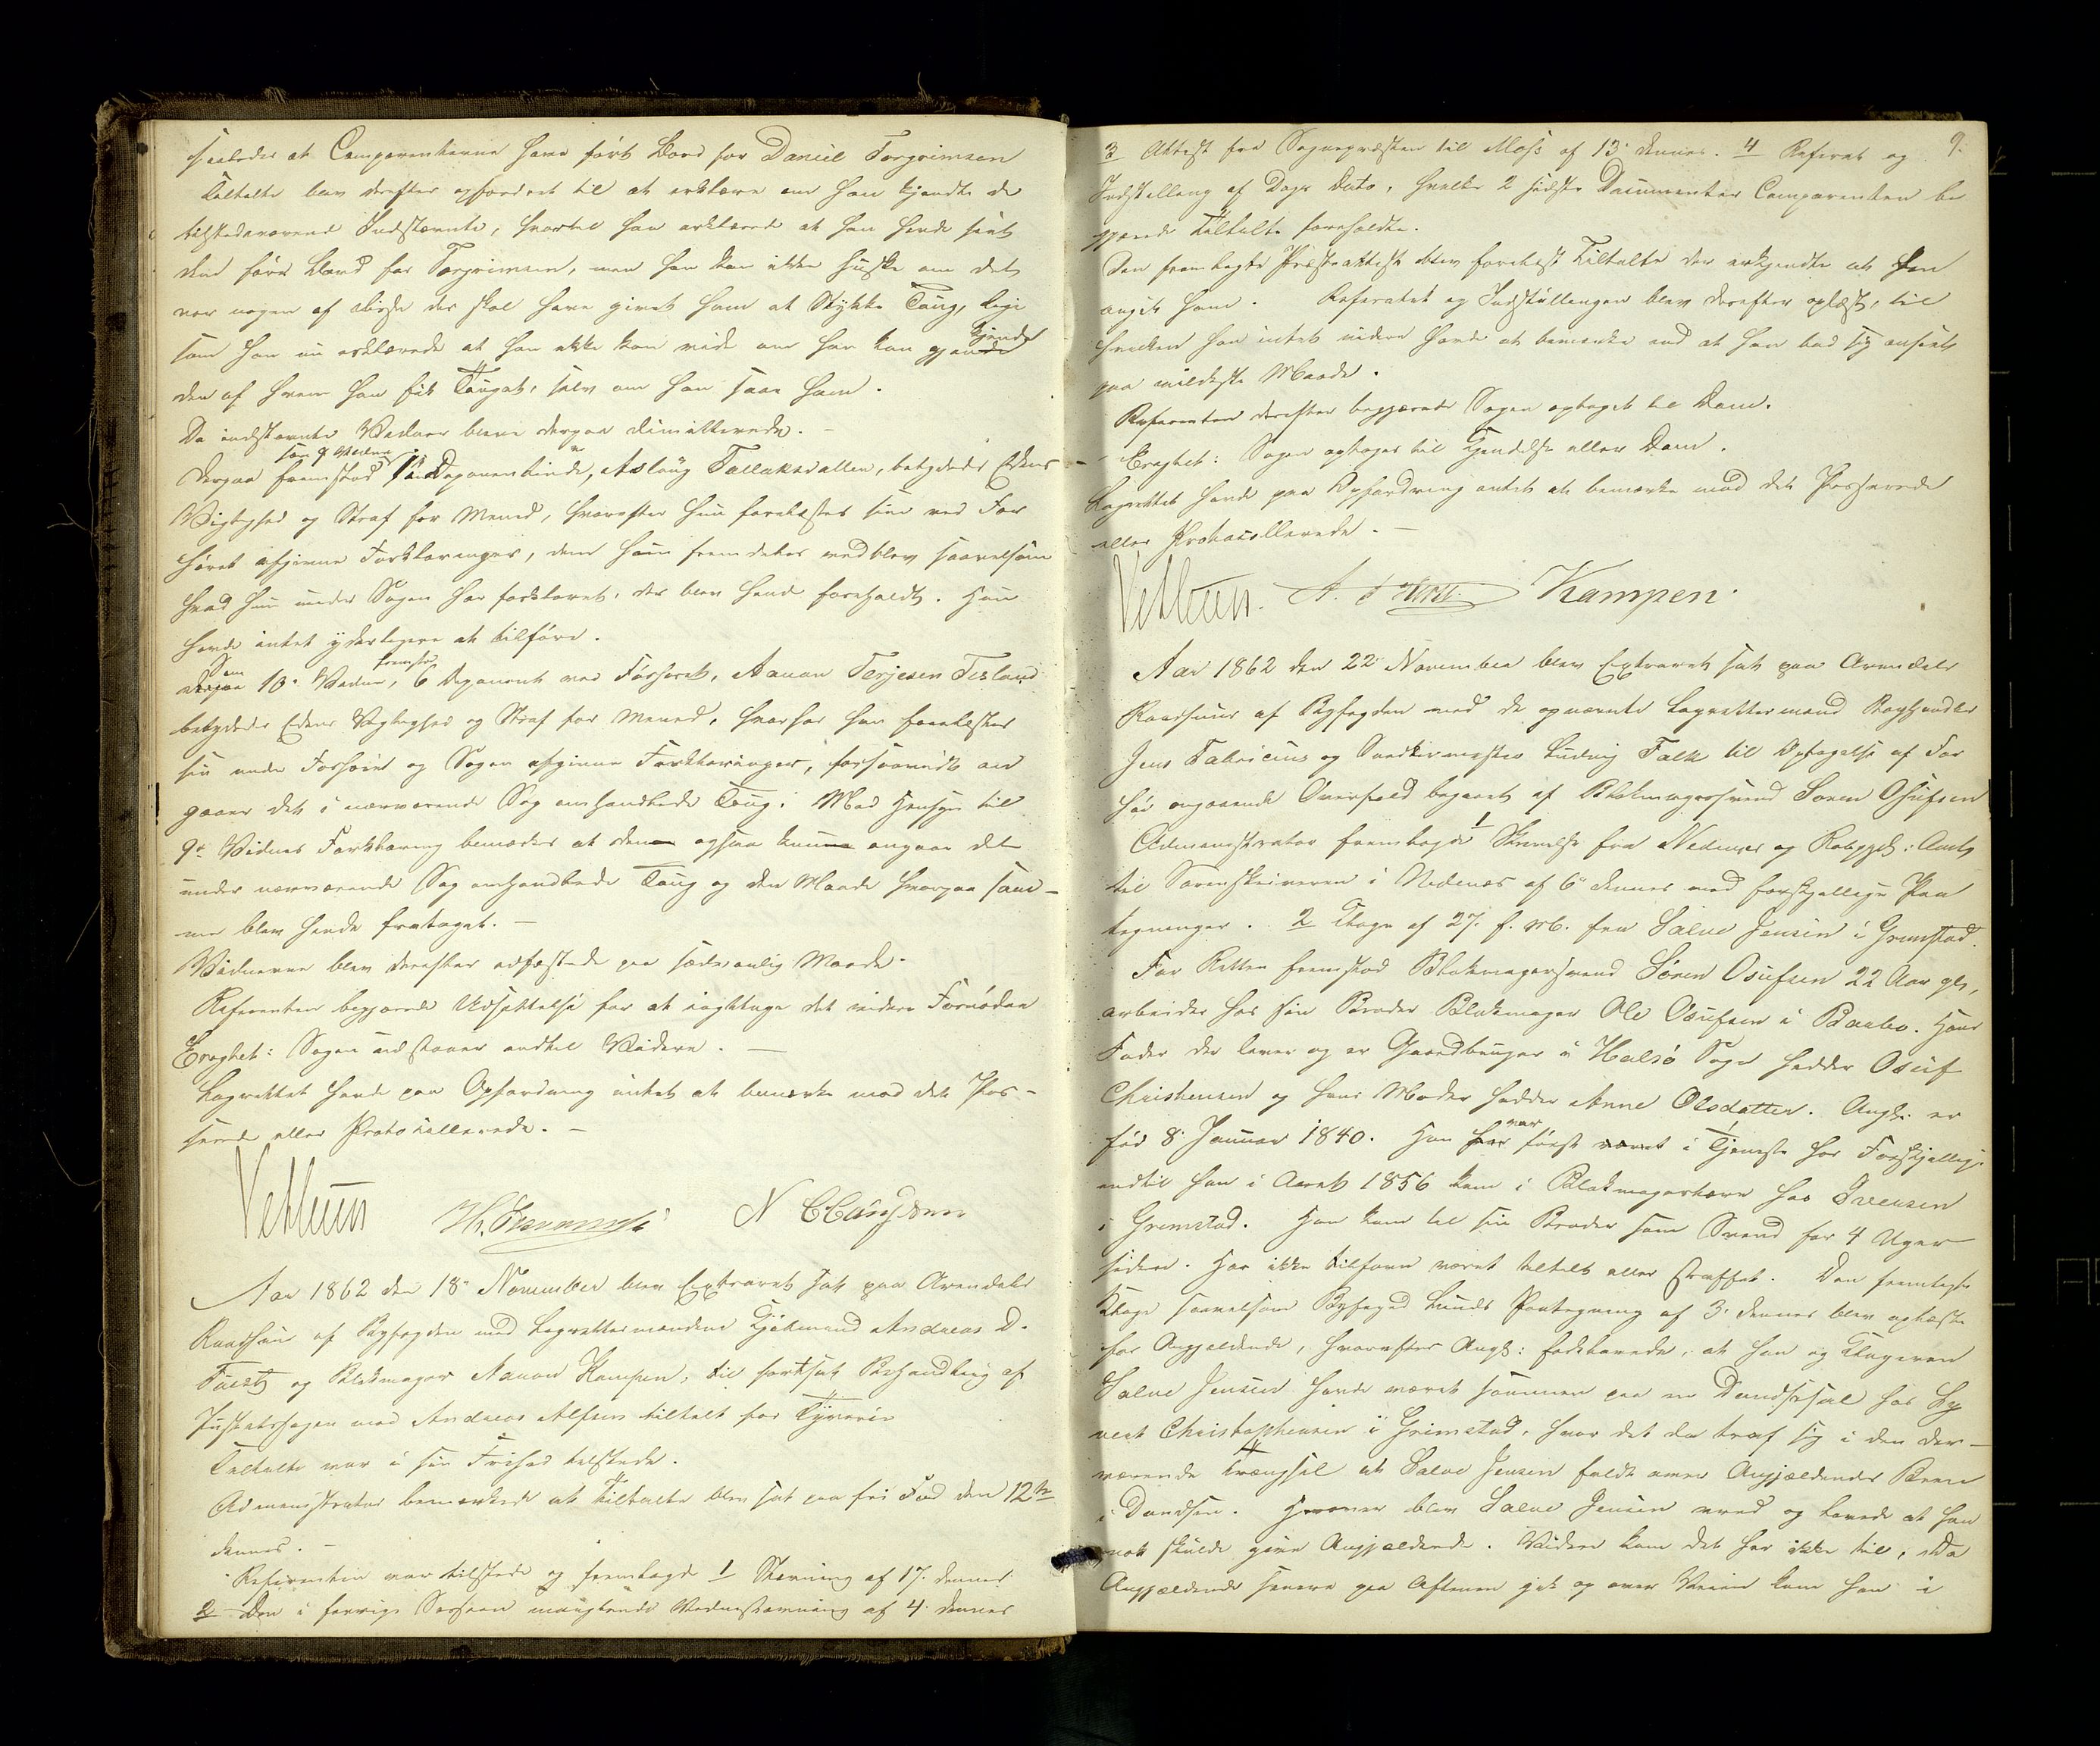 saaledes at Comparenterne have ført Baad for Daniel Torgrimsen
Tiltalte blev derefter opfordret til at erklære om han kjendte de
tilstedeværende Indstævnte, hvortil han erklærede at han havde seet
dem føre Baad for Torgrimsen, men han kan ikke huske om det
var nogen af disse der skal have givet ham et Stykke Toug, lige
som han nu erklærede at han ikke kan vide om han kan kjende
den af hvem han fik Touget, selv om han saae ham.
De indstævnte Vidner bleve derpaa dimitterede. –
Derpaa fremstod som 9 Vidne Deponentinde, Aslaug Tallaksdatter, betydedes Edens
Vigtighed og Straf for Meened, hvorefter hun forelæstes sine ved For
høret afgivne Forklaringer, dem hun fremdeles vedblev saavelsom
hvad hun under Sagen har forklaret, der blev hende foreholdt. Hun
havde intet yderligere at tilføre.
Som 10de Vidne, fremstod 6 Deponent ved Forhøret, Aanon Terjesen Fesland
betydedes Edens Vigtighed og Straf for Meened, hvorfor han forelæstes
sin under Forhøret og Sagen afgivne Forklaringer, forsaavidt an
gaaer det i nærværende Sag omhandlede Toug. Med Hensyn til
9de Vidnes Forklaring bemærkes at den ogsaa kun angaar det
under nærværende Sag omhandlede Toug og den Maade hvorpaa sam–
me blev hende frataget. –
Vidnerne blev derefter edfæstede paa sædvanlig Maade.
Referenten begjærede Udsættelse for at iagttage det videre Fornødne
Eragtet: Sagen udstaaer indtil Videre. –
Lagrettet havde paa Opfordring intet at bemærke mod det Pas–
serede eller Protokollerede. –
N
Aar 1862 den 18de November blev Extraret sat paa Arendals
Raadhuus af Byfogden med Lagrettesmændene Kjøbmand Andreas D.
og Blokmager Aanon Kampen, til fortsat Behandling af
Justitssagen mod Andreas Alfsen tiltalt for Tyverie
Tiltalte var i sin Frihed tilstede.
Administrator bemærkede at Tiltalte blev sat paa fri Fod den 12te
dennes. –
Referenten var tilstede og fremlagde 1 Stævning af 17. dennes.
2 Den i forrige Session manglende Vidnestævning af 4. dennes
9.
3 Attest fra Sognepræsten til Moss af 13de dennes. 4 Referat og
Indstilling af Dags Dato, hvilke 2 sidste Documenter Comparenten be
gjærede Tiltalte foreholdte.
Den fremlagte Præsteattest blev forelæst Tiltalte der erkjendte at den
angik ham. Referatet og Indstillingen blev derefter oplæst, til
hvilken han intet videre havde at bemærke end at han bad sig anseet
paa mildeste Maade.
Referenten derefter begjærede Sagen optaget til Dom.
– Eragtet: Sagen optages til Kjendelse eller Dom.
Lagrettet havde paa Opfordring intet at bemærke mod det Passerede
eller Protocollerede. –
Kampen.
Aar 1862 den 22de November blev Extraret sat paa Arendals
Raadhuus af Byfogden med de opnævnte Lagrettesmænd Boghandler
Jens Fabricius og Snedkermester Ludvig Falk til Optagelse af For
hør angaaende Overfald begaaet af Blokmagersvend Søren Osufsen
Administrator fremlagde 1 Skrivelse fra Nedenæs og Robygd: Amt
til Sorenskriveren i Nedenæs af 6te dennes med forskjellige Paa
tegninger. 2 Klage af 27. f. M. fra Salve Jensen i Grimstad.
For Retten fremstod Blokmagersvend Søren Osufsen 22 Aar gl,
arbeider hos sin Broder Blokmager Ole Osufsen i Barbo. Hans
Fader der lever og er Gaardbruger i Halsø Sogn hedder Osuf
Christensen og hans Moder hedder Anne Olsdatter. Angl. er
født 8. Januar 1840. Han var først i Tjeneste hos Forskjellige
indtil han i Aaret 1856 kom i Blokmagerlære hos Svensen
i Grimstad. Han kom til sin Broder som Svend for 4 Uger
siden. Har ikke tilforn været tiltalt eller straffet. Den fremlagte
Klage saavelsom Byfoged Lunds Paategning af 3. dennes blev oplæst
for Angjældende, hvorefter Angl: forklarede, at han og Klageren
Salve Jensen havde været sammen paa en Dandsesal hos
Christophersen i Grimstad, hvor det da traf sig i den der–
værende Trængsel at Salve Jensen faldt over Angjældendes Been
i Dandsen. Herover blev Salve Jensen vred og lovede at han
nok skulde give Angjældende. Videre kom det her ikke til, da
Angjældende senere paa Aftenen gik op over Veien kom han i